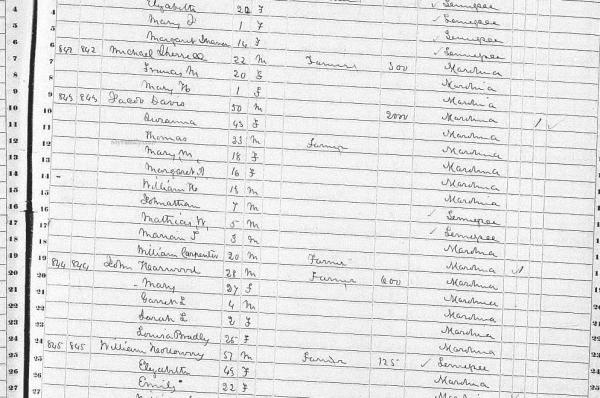 4 Elizabeth 22 F Tennessee
5 Mary J 1 F Tennessee
6 Margaret 14 F Tennessee
7 842 842 Michael Sherrill 22 M Farmer 300 N Carolina
8 Frances M 20 F N Carolina
9 Mary 1 F N Carolina
10 843 843 Jacob Davis 50 M 2000 N Carolina
11 43 F N Carolina 1
12 Thomas 23 M Farmer N Carolina
13 Mary M 18 F N Carolina
14 Margaret A 16 F N Carolina
15 William H 13 M N Carolina
16 Johnathan 7 M N Carolina
17 Mathias W. 5 M Tennessee
18 Marion F 3 M Tennessee
19 William Carpenter 20 M Farmer N Carolina
20 844 844 John 28 M Farmer 600 N Carolina
21 Mary 27 F N Carolina
22 Garrett L 4 M N Carolina
23 Sarah L 2 F N Carolina
24 Louisa Bradly 25 F N Carolina
25 845 845 William 57 M Farmer 125 Tennessee
26 Elizabeth 45 F N Carolina
27 Emily 22 F N Carolina